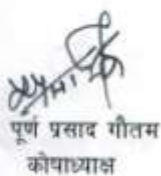 पूर्ण प्रसाद गौतम
कोषाध्याक्ष